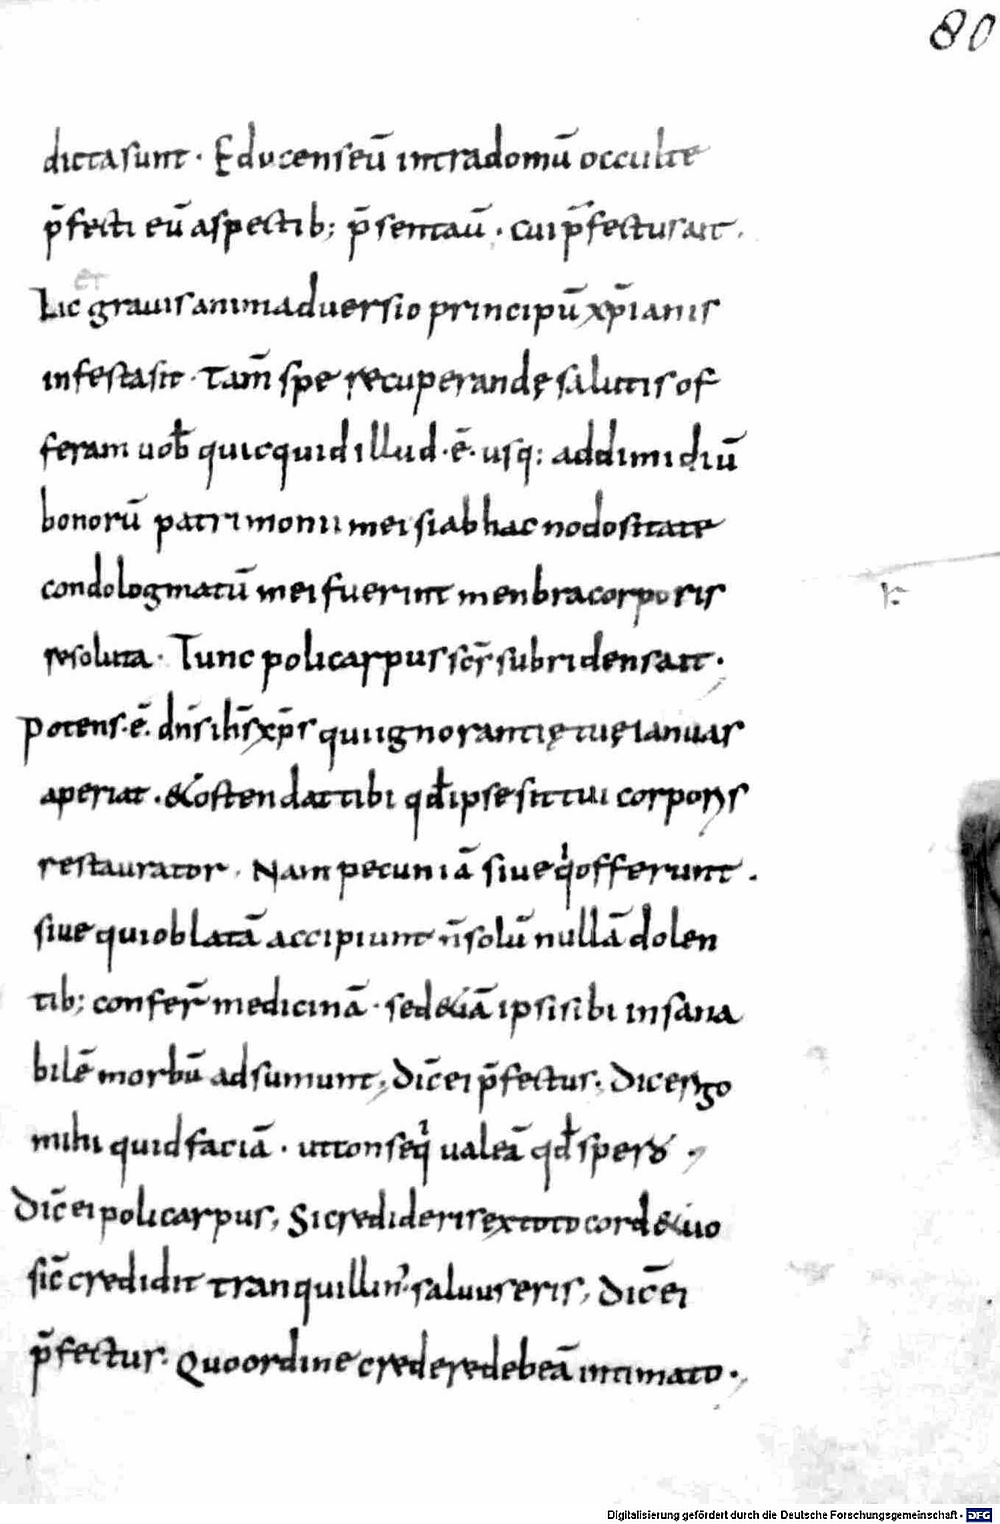 80
dicta sunt · Educens eū intra domū occulte
p̄fecti eū aspectib; p̄sentauī · cui p̄fectus ait ·
et
Lic& grauis animaduersio principū xp̄ianis
infesta sit · Tam̄ spe recuperandę salutis of
feram uob̄ quicquid illud · ē · usq: ad dimidiū
bonorū patrimonii mei si ab hac nodositate
condologmatū mei fuerint menbra corporis
resoluta · Tunc policarpus sc̄s subridens ait ·
potens · ē · dn̄s ih̄s xp̄s qui ignorantię tuę ianuas
aperiat · & ostendat tibi qd̄ ipse sit tui corporis
restaurator · Nam pecuniā siue qⁱ offerunt ·
siue qui oblatā accipiunt n̄ solū nullā dolen
tib; confer̄ medicinā · sed &iā ipsi sibi insana
bilē morbū adsumunt; dic̄ ei p̄fectus; dic ergo
mihi quid faciā · ut conseqⁱ ualeā qd̄ spero ·
dic̄ ei policarpus; Si credideris ex toto corde tuo
sic̄ credidit tranquillin' saluus eris; dic̄ ei
p̄fectus · Quo ordine credere debeā intimato ·
Digitalisierung gefördert durch die Deutsche Forschungsgemeinschaft - DFG